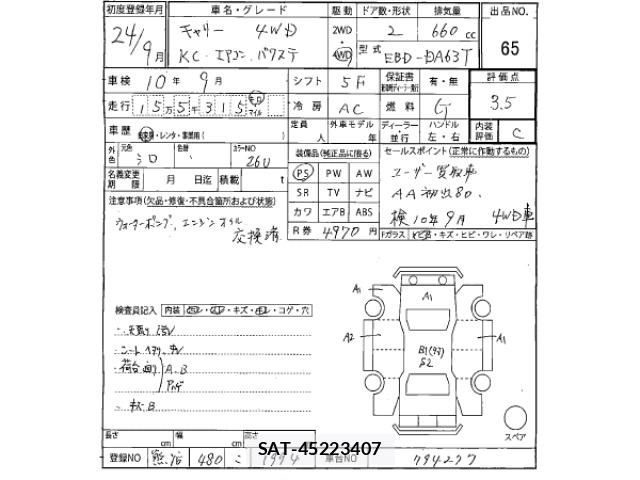 初度登録年月 車名・グレード 駆動 ドア数・形状 排気量 出品NO.
24/9月 キャリー 4WD 2WD・4WD 2 660cc 65
KC・エアコン、パワステ 型式 EBD-DA63T
車検 10年 9月 シフト 5F 保証書 有・無 評価点 3.5
走行 15万5千315 キロ マイル 冷房 AC 燃料 G 内装評価 C
車歴 自家用・レンタ・事業用( ) 定員 人 外車モデル 年 ディーラー 並行 ハンドル 左・右
外色 元色 シロ 色替 カラーNO 26U
装備品(純正品に限る) セールスポイント(正常に作動するもの)
名義変更期限 月 日迄 積載 t
PS PW AW ユーザー買取車
SR TV ナビ AA初出品。
カワ エアB ABS 検10年9月 4WD車
R券 4970円 Fガラス ・キズ・ヒビ・ワレ・リペア跡
注意事項(欠品・修復・不具合箇所および状態)
ウォーターポンプ、エンジンオイル
交換済
検査員記入 内装 ・キズ・ ・コゲ・穴
シート
荷台 A.B
キズB
A1 A1
A2 B1(97) A1
S2
スペア
長さ cm 幅 cm 高さ
SAT-45223407
登録NO 480 こ 1994 車台NO 794277